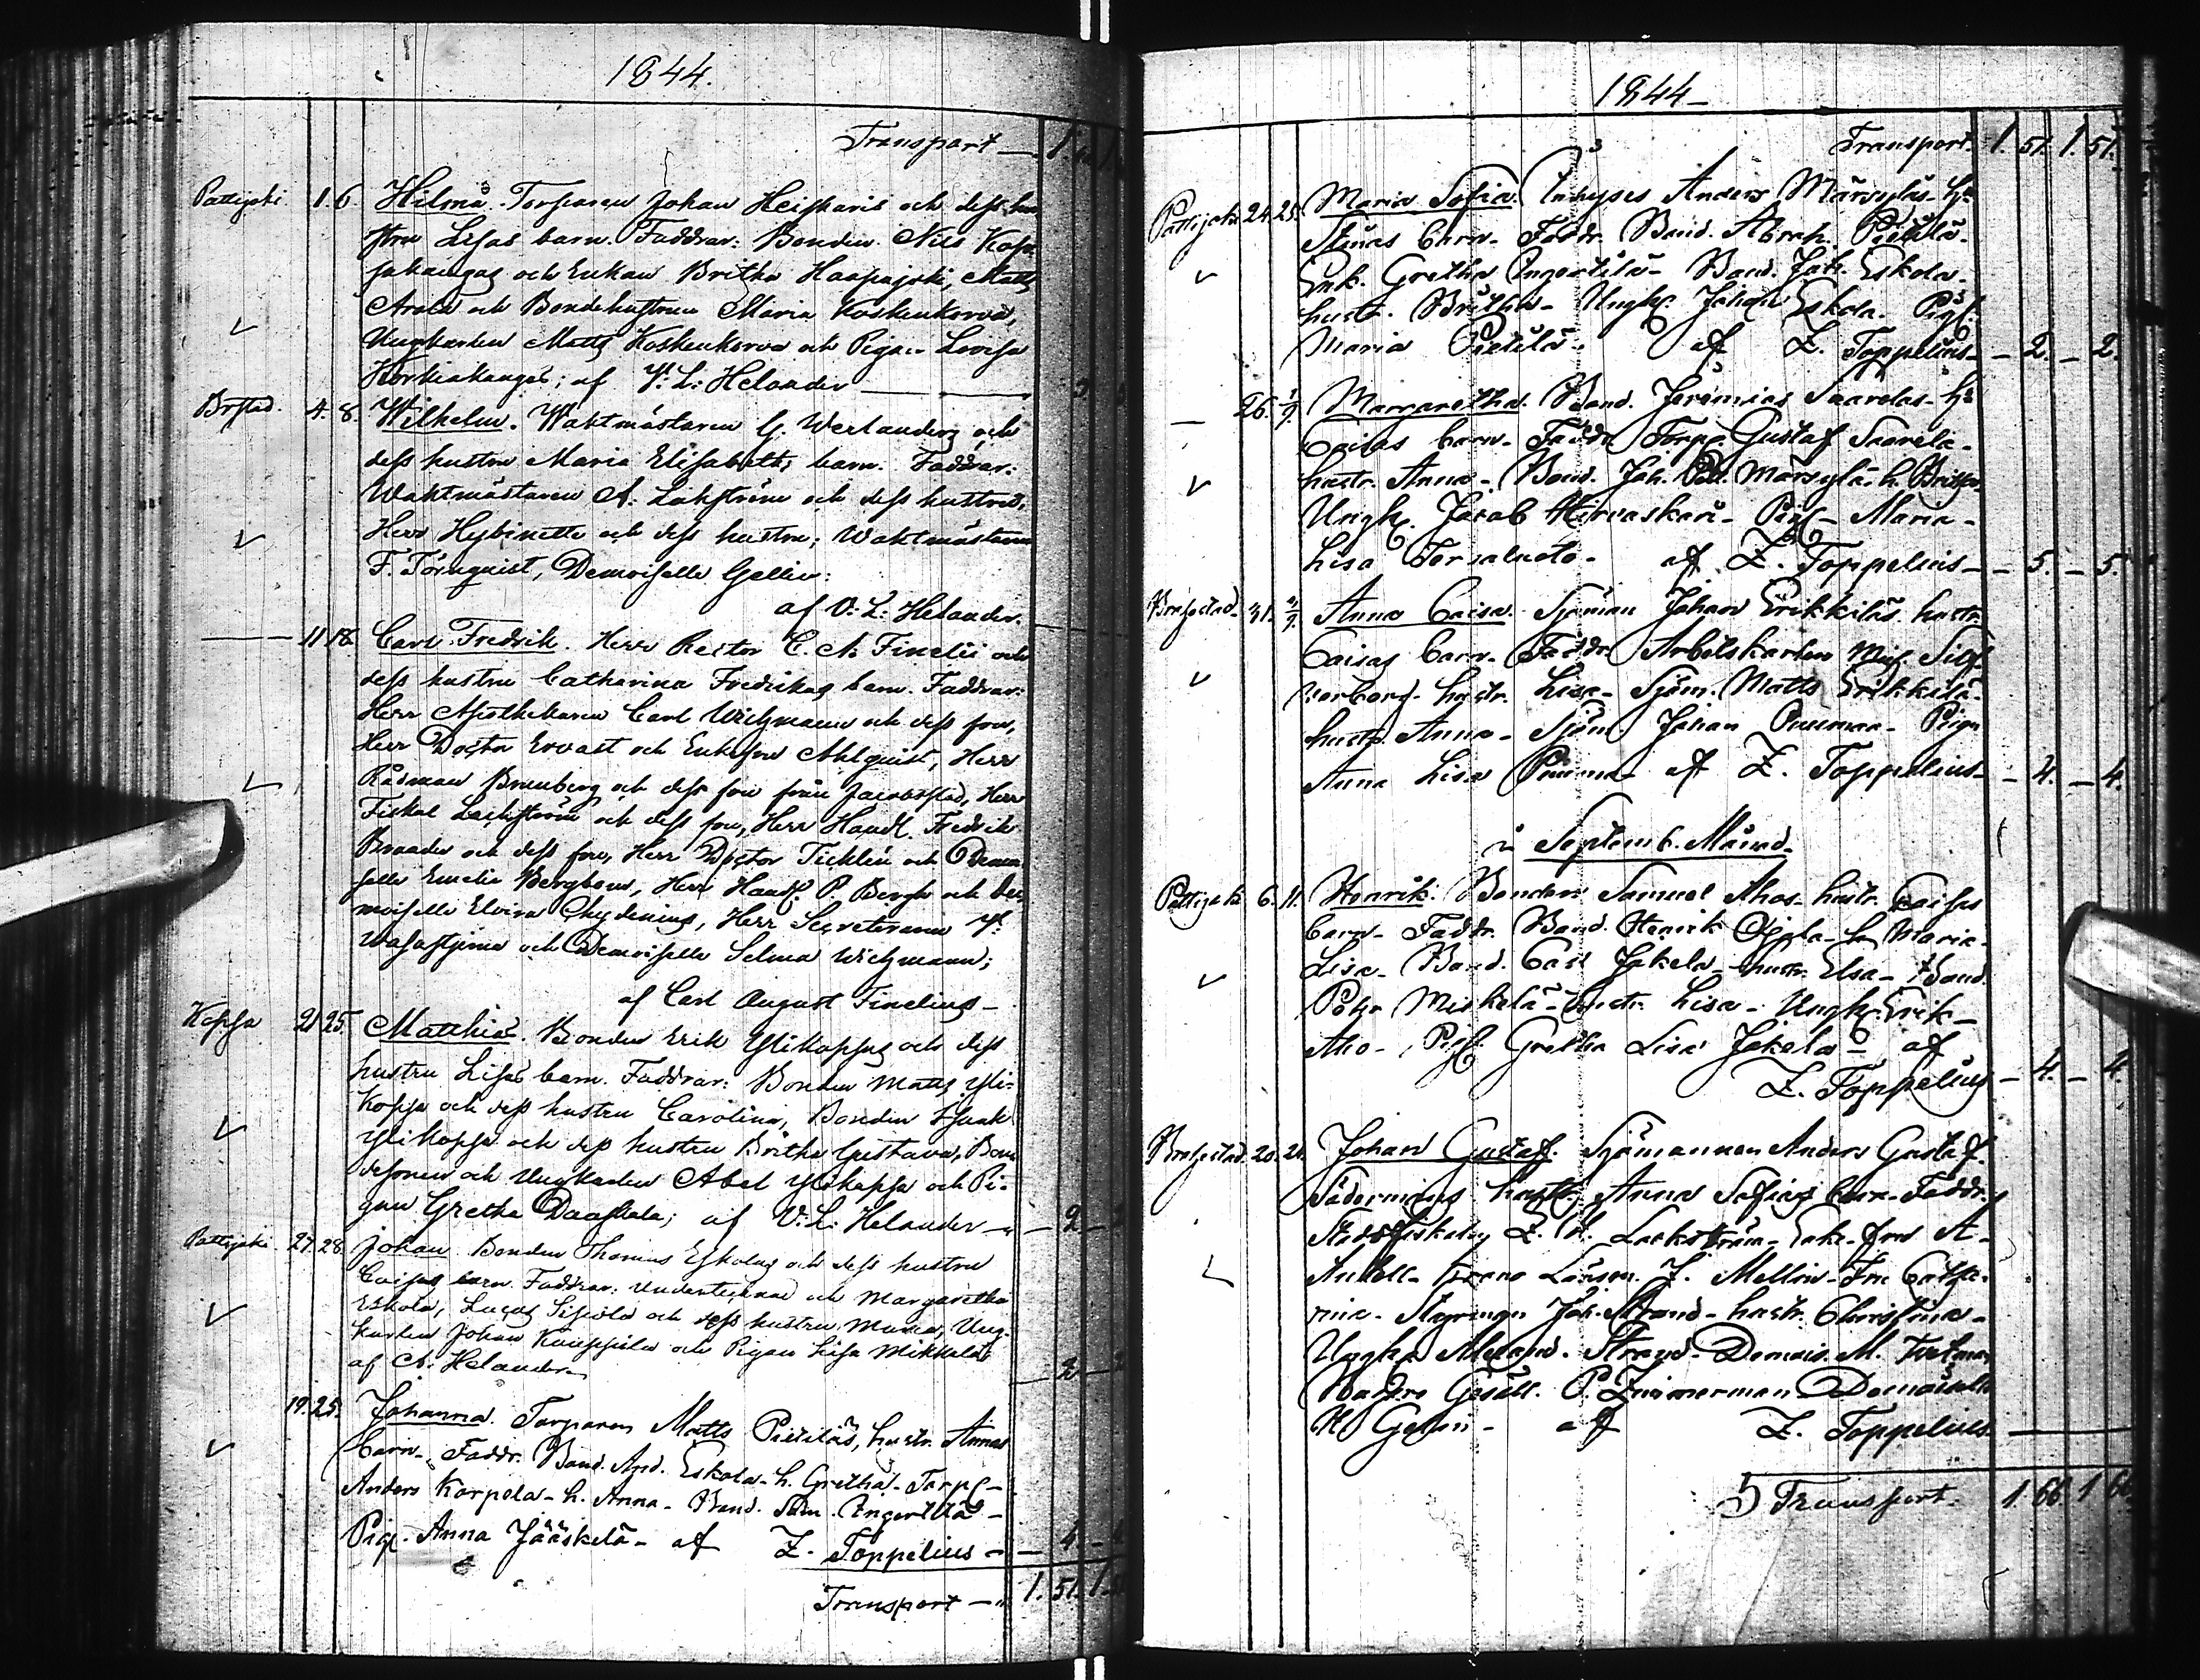 1844.
Transport — 1.
Pattijoki 1. 6. Hilma. Torparen Johan Heiskaris och dess hu
stru Lisas barn. Faddrar: Bonden Nils Kop
sakangas och Enkan Britha Haapajoki, Matts
Arola och Bondehustrun Maria Koskenkorva,
Ungkarlen Matts Koskenkorva och Pigan Lovisa
; af V. L. Helander — 3.
Brstad. 4. 8. Wilhelm. Waktmästaren G. Werlanders och
dess hustru Maria Elisabeths barn. Faddrar:
Waktmästaren A. och dess hustru,
Herr Hybinette och dess hustru; Waktmästaren
F. Törnquist, Demoiselle Gellin:
af V. L. Helander.
— 11 18. Carl Fredrik. Herr Rector C. A. Finelii och
dess hustru Catharina Fredrikas barn. Faddrar:
Herr Apothekaren Carl Wichmann och dess fru,
Herr Doctor Ervast och Enkefru Ahlquist, Herr
Rådman och dess fru från Jacobstad, Herr
Fiskal Lackström och dess fru, Herr Handl. Fredrik
och dess fru, Herr Doctor Ticklén och Demoi
selle Emelie Bergbom, Herr Handl. P. Bergh och De
moiselle Elvira Chydenius, Herr Secreteraren
Wasastjerna och Demoiselle Selma Wichmann;
af Carl August Finelius —
Kopsa 21 25. Matthias. Bonden Erik Ylikopsas och dess
hustru Lisas barn. Faddrar: Bonden Matts Yli-
kopsa och dess hustru Carolina, Bonden Isaak
Ylikopsa och dess hustru Britha Gustava, Bon
desonen och Ungkarlen Abel Ylikopsa och Pi-
gan Gretha; af V. L. Helander — 2 —
Pattijoki. 27. 28. Johan. Bonden Thomas Eskolas och dess hustru
Caisas barn. Faddrar: undertecknad och Margaretha
Eskola, Lucas och dess hustru Maria, Ung-
karlen Johan Kauppila och Pigan Lisa Mikkola
af A. Helander — 2 —
19. 25. Johanna. Torparen Matts Pietiläs, hustr. Annas
barn. Faddr. Bond. And. Eskola - h. Gretha - Torp. -
Anders Korpela - h. Anna - Bond. Sam. Ingerttilä -
Pig. Anna Jääskelä - af Z. Toppelius — 4. —
Transport — 1. 51. 1.
1844 —
Transport. 1. 51. 1. 51.
Pattijoki 24. 25. Maria Sofia. Inhyses Anders Märsyläs h.
Stinas barn - Faddr. Bond. Abrah. Pietilä -
Enk. Gretha Ingerttilä - Bond. Joh. Eskola -
hustr. Britha - Ungk. Johan Eskola. Pig.
Maria Pietilä. af Z. Toppelius — 2. — 2.
— 26. 1/9 Margaretha. Bond. Jeremias Saarelas h.
Caisas barn - Faddr. Torp. Gustaf Saarela -
hustr. Anna - Bond. Joh. Märsylä - h. Britha
Ungk. Jacob Hirvaskari - Pig. - Maria -
Lisa - af Z. Toppelius — 5. — 5.
Brahestad - 31. Anna Caisa. Sjöman Johan Erikkiläs hustr.
Caisas barn - Faddr. Arbetskarlen Mich. Silf-
verberg - hustr. Lisa - Sjöm. Matts Erikkilä -
hustr. Anna - Sjöm. Johan - Pigan
Anna Lisa af Z. Toppelius — 4. — 4.
i Septemb. Månad.
Pattijoki 6. 11. Henrik. Bonden Samuel Ahos hustr. Caisas
barn - Faddr. Bond. Henrik - h. Maria -
Lisa - Bond. Carl Jokela - hustr. Elsa - Bond.
Petr Miskelä - hustr. Lisa - Ungk. Erik -
Aho - Pig. Gretha Lisa Jokela - af
Z. Toppelius — 4. — 4.
Brahestad. 20. Johan Gustaff. Sjömannen Anders Gustaf
hustr. Anna Sofias barn - Faddr.
Stadsfiskalen Z. Lackström - Enk. fru A -
J. Mellin - Fru Catha-
rina - Styrman Joh. Strand - hustr. Christina -
Ungk. Alexand. Strand - Demois. M.
Gesäll. P. Zimmerman Demoiselle
af Z. Toppelius —
5 Transport. 1. 66. 1 66.